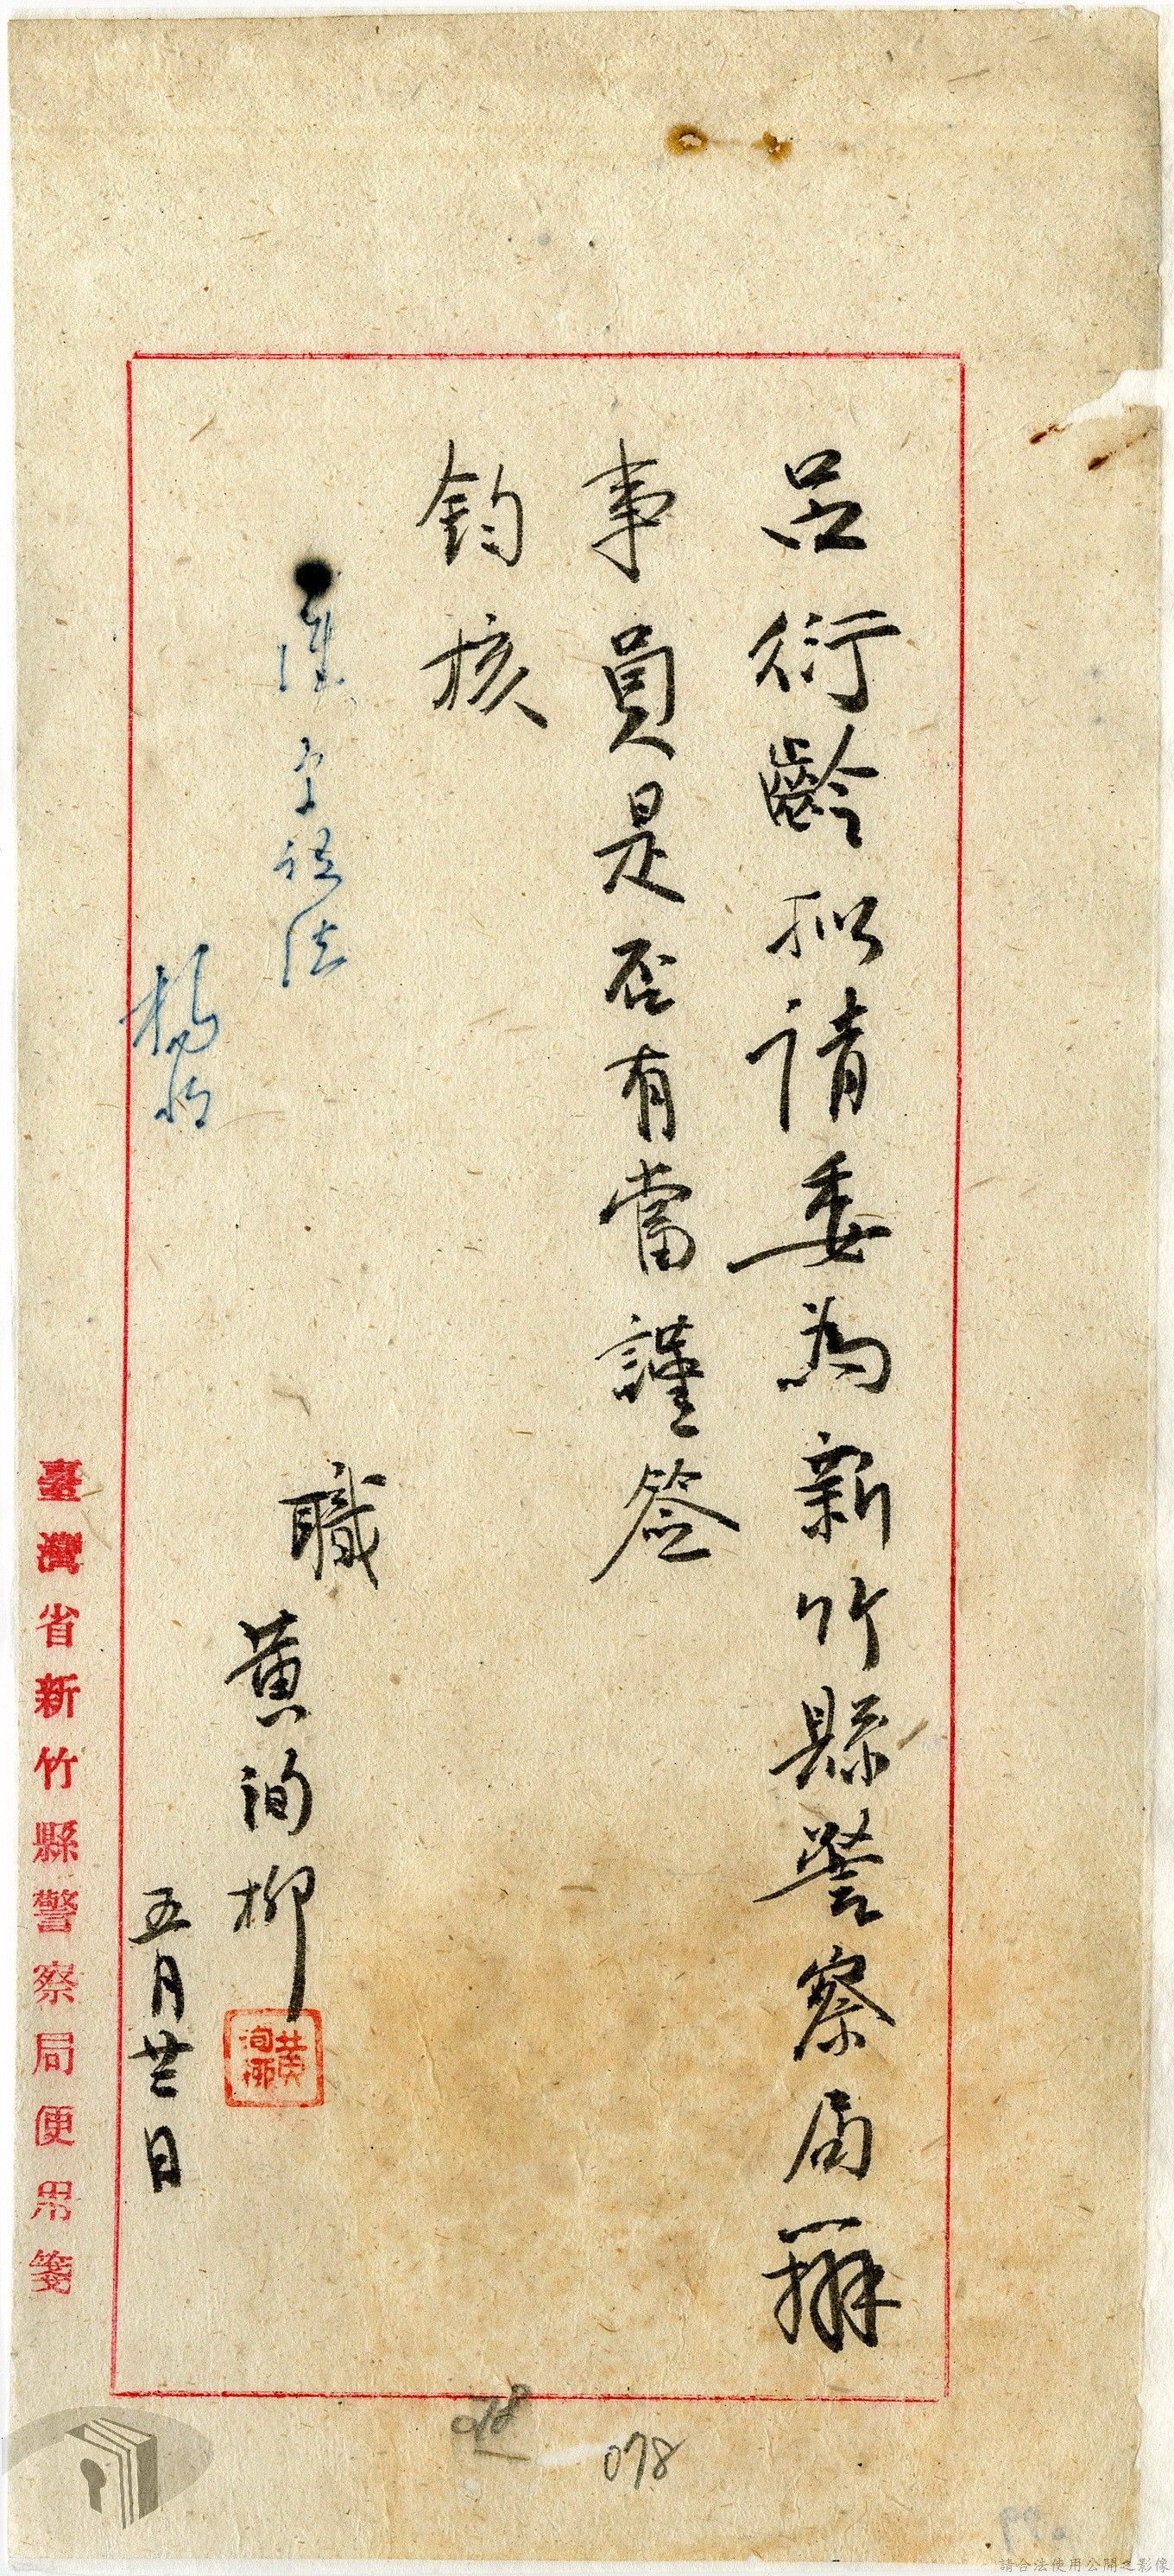 呂衍齡擬請委為新竹縣警察局辦
事員是否有當謹簽
鈞核
職
黃詢柳
黃詢柳
五月廿三日
臺灣省新竹縣警察局便用箋
078
078
請合法使用公開之影像